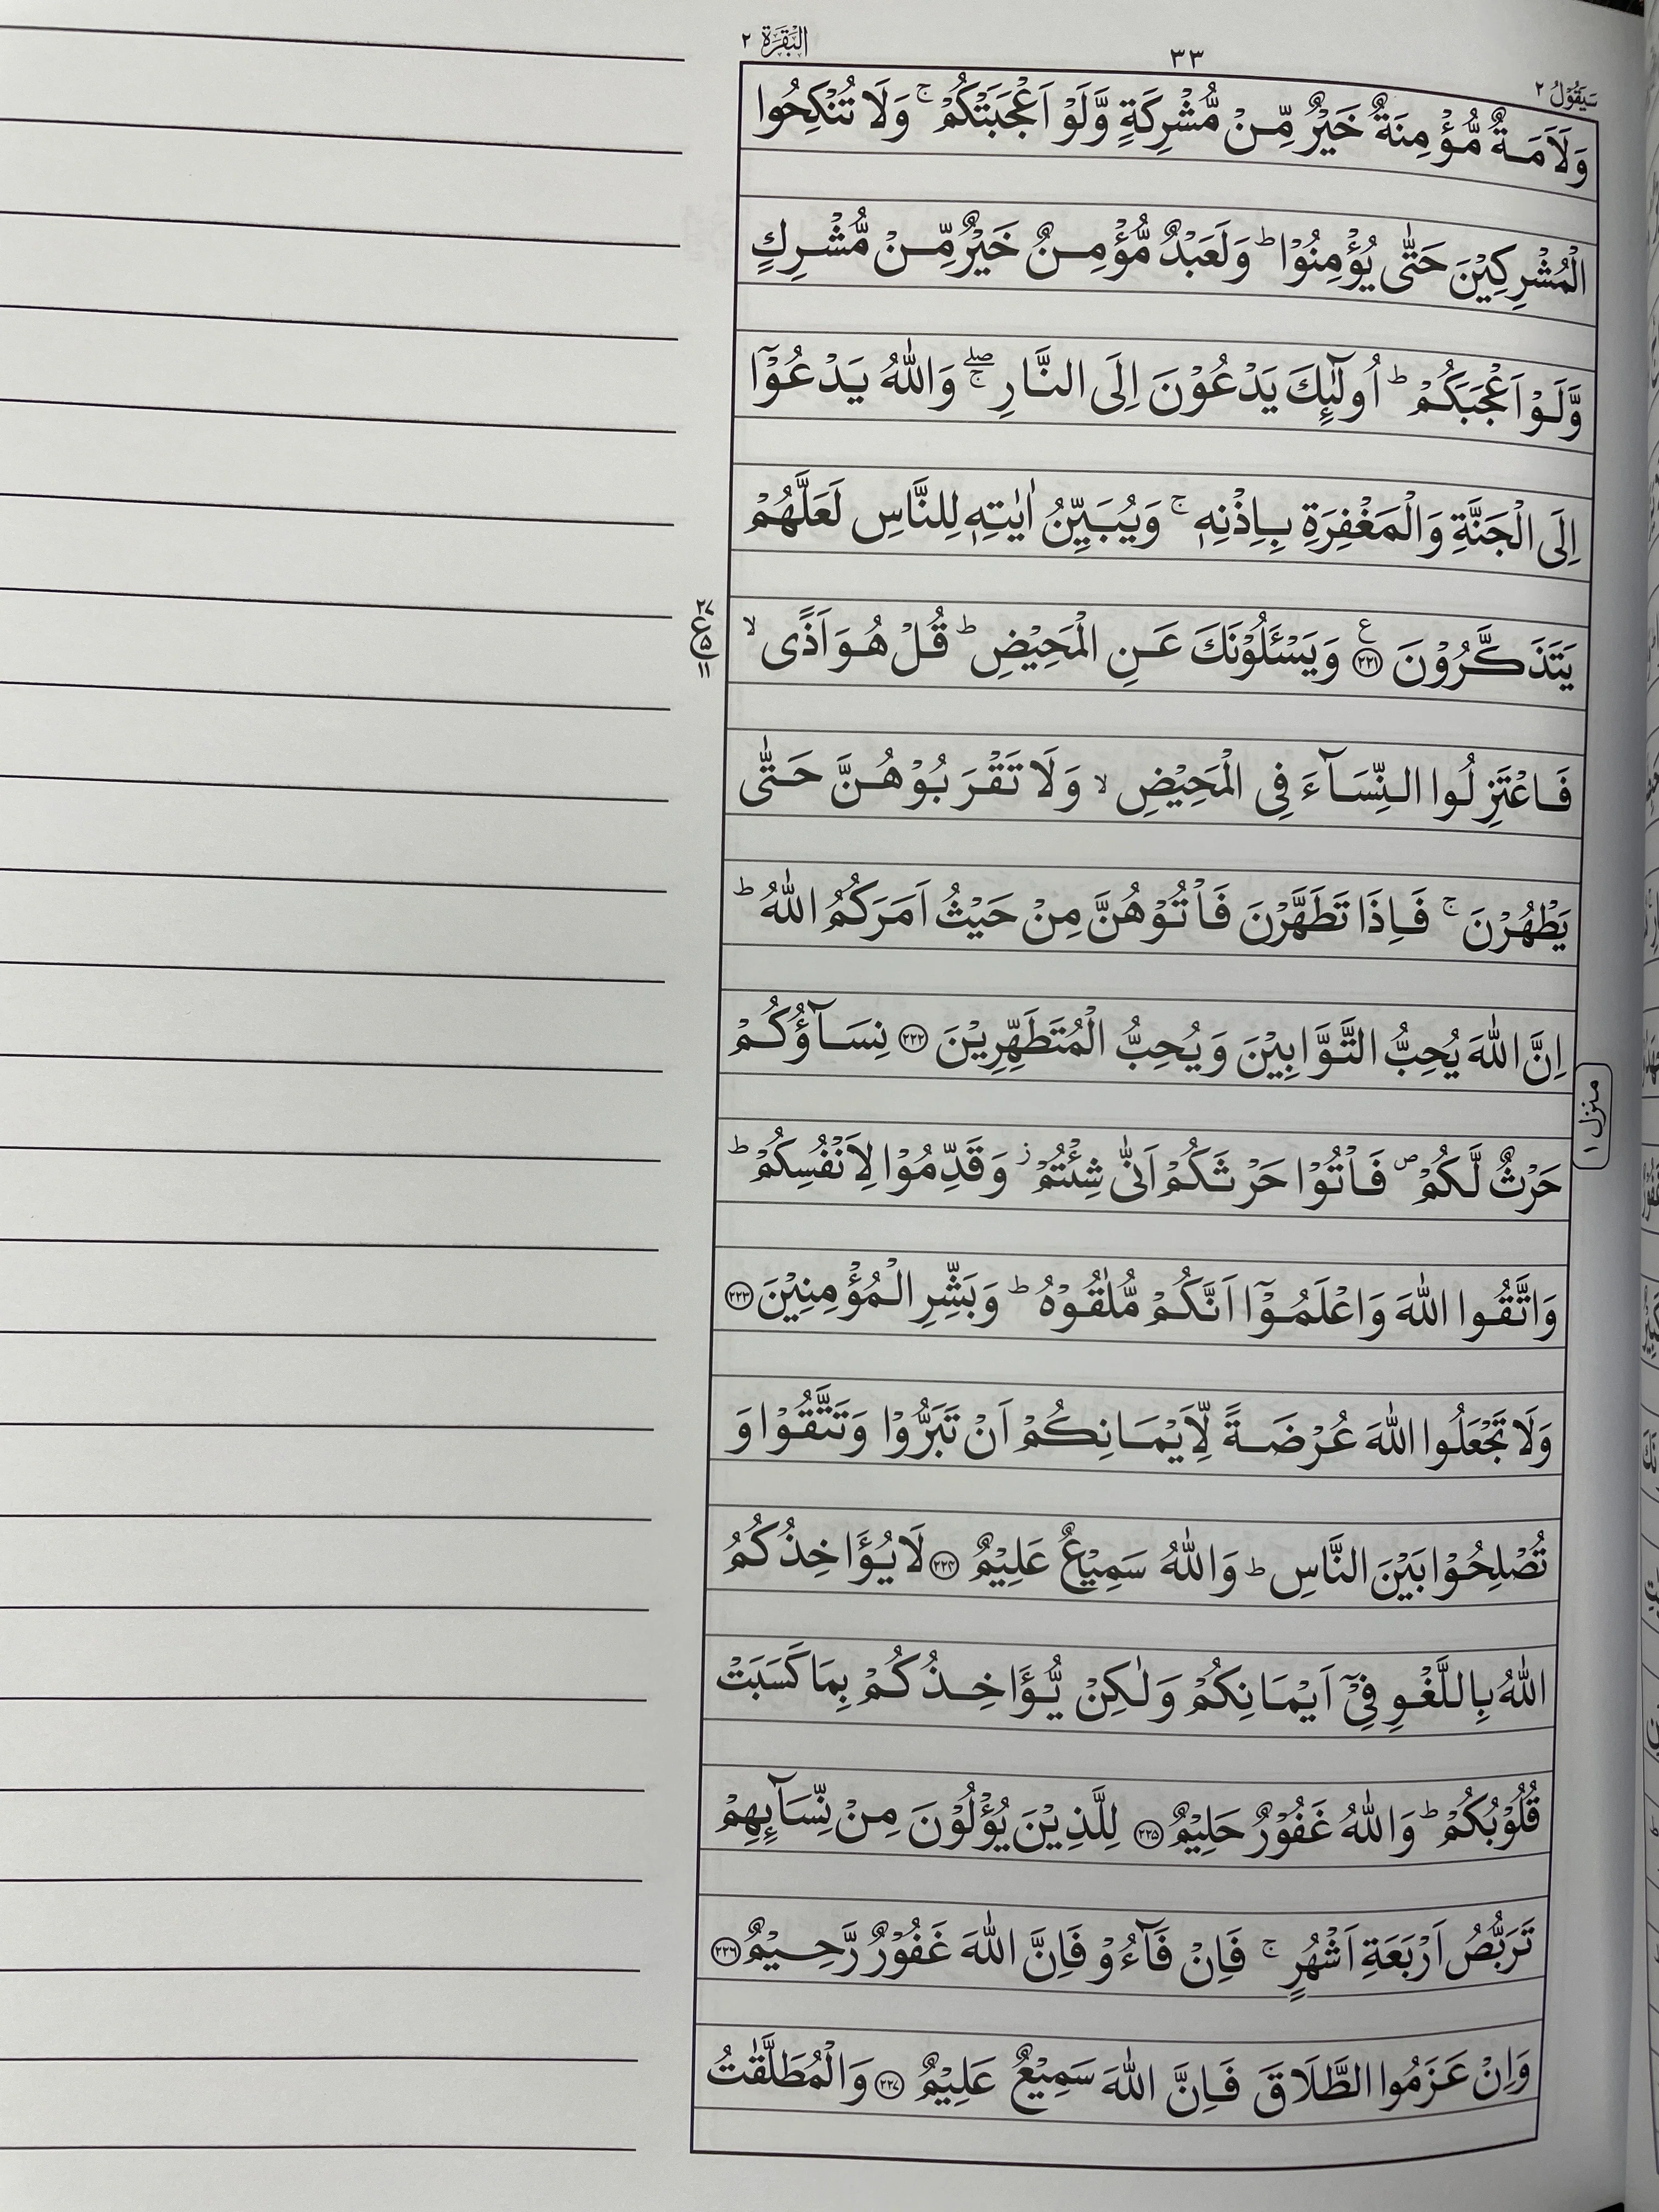 سَيَقُوْلُ ٢
٣٣
الْبَقَرَة ٢
وَلَاَمَةٌ مُّؤْمِنَةٌ خَيْرٌ مِّنْ مُّشْرِكَةٍ وَّلَوْ اَعْجَبَتْكُمْ ۚ وَلَا تُنْكِحُوا
الْمُشْرِكِيْنَ حَتّٰى يُؤْمِنُوْا ؕ وَلَعَبْدٌ مُّؤْمِنٌ خَيْرٌ مِّنْ مُّشْرِكٍ
وَّلَوْ اَعْجَبَكُمْ ؕ اُولٰٓئِكَ يَدْعُوْنَ اِلَى النَّارِ ۖۚ وَاللّٰهُ يَدْعُوْٓا
اِلَى الْجَنَّةِ وَالْمَغْفِرَةِ بِاِذْنِهٖ ۚ وَيُبَيِّنُ اٰيٰتِهٖ لِلنَّاسِ لَعَلَّهُمْ
يَتَذَكَّرُوْنَ ﴿٢٢١﴾ ع وَيَسْـَٔلُوْنَكَ عَنِ الْمَحِيْضِ ؕ قُلْ هُوَ اَذًى ۙ
٢٧
ع
٥
١١
فَاعْتَزِلُوا النِّسَآءَ فِى الْمَحِيْضِ ۙ وَلَا تَقْرَبُوْهُنَّ حَتّٰى
يَطْهُرْنَ ۚ فَاِذَا تَطَهَّرْنَ فَاْتُوْهُنَّ مِنْ حَيْثُ اَمَرَكُمُ اللّٰهُ ؕ
اِنَّ اللّٰهَ يُحِبُّ التَّوَّابِيْنَ وَيُحِبُّ الْمُتَطَهِّرِيْنَ ﴿٢٢٢﴾ نِسَآؤُكُمْ
مَنزل ١
حَرْثٌ لَّكُمْ ۪ فَاْتُوْا حَرْثَكُمْ اَنّٰى شِئْتُمْ ؗ وَقَدِّمُوْا لِاَنْفُسِكُمْ ؕ
وَاتَّقُوا اللّٰهَ وَاعْلَمُوْٓا اَنَّكُمْ مُّلٰقُوْهُ ؕ وَبَشِّرِ الْمُؤْمِنِيْنَ ﴿٢٢٣﴾
وَلَا تَجْعَلُوا اللّٰهَ عُرْضَةً لِّاَيْمَانِكُمْ اَنْ تَبَرُّوْا وَتَتَّقُوْا وَ
تُصْلِحُوْا بَيْنَ النَّاسِ ؕ وَاللّٰهُ سَمِيْعٌ عَلِيْمٌ ﴿٢٢٤﴾ لَا يُؤَاخِذُكُمُ
اللّٰهُ بِاللَّغْوِ فِىْٓ اَيْمَانِكُمْ وَلٰكِنْ يُّؤَاخِذُكُمْ بِمَا كَسَبَتْ
قُلُوْبُكُمْ ؕ وَاللّٰهُ غَفُوْرٌ حَلِيْمٌ ﴿٢٢٥﴾ لِلَّذِيْنَ يُؤْلُوْنَ مِنْ نِّسَآئِهِمْ
تَرَبُّصُ اَرْبَعَةِ اَشْهُرٍ ۚ فَاِنْ فَآءُوْ فَاِنَّ اللّٰهَ غَفُوْرٌ رَّحِيْمٌ ﴿٢٢٦﴾
وَاِنْ عَزَمُوا الطَّلَاقَ فَاِنَّ اللّٰهَ سَمِيْعٌ عَلِيْمٌ ﴿٢٢٧﴾ وَالْمُطَلَّقٰتُ